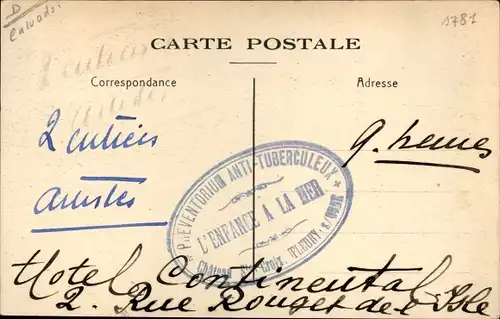 D
Calvados.
1781
CARTE POSTALE
Correspondance
Adresse
2 entiers
artistes
9. hemes
PREVENTORIUM ANTI-TUBERCULEUX
L'ENFANCE A LA MER
FLEURY S/ORNE
Hotel Continental
2. Rue Rouget de l'Isle